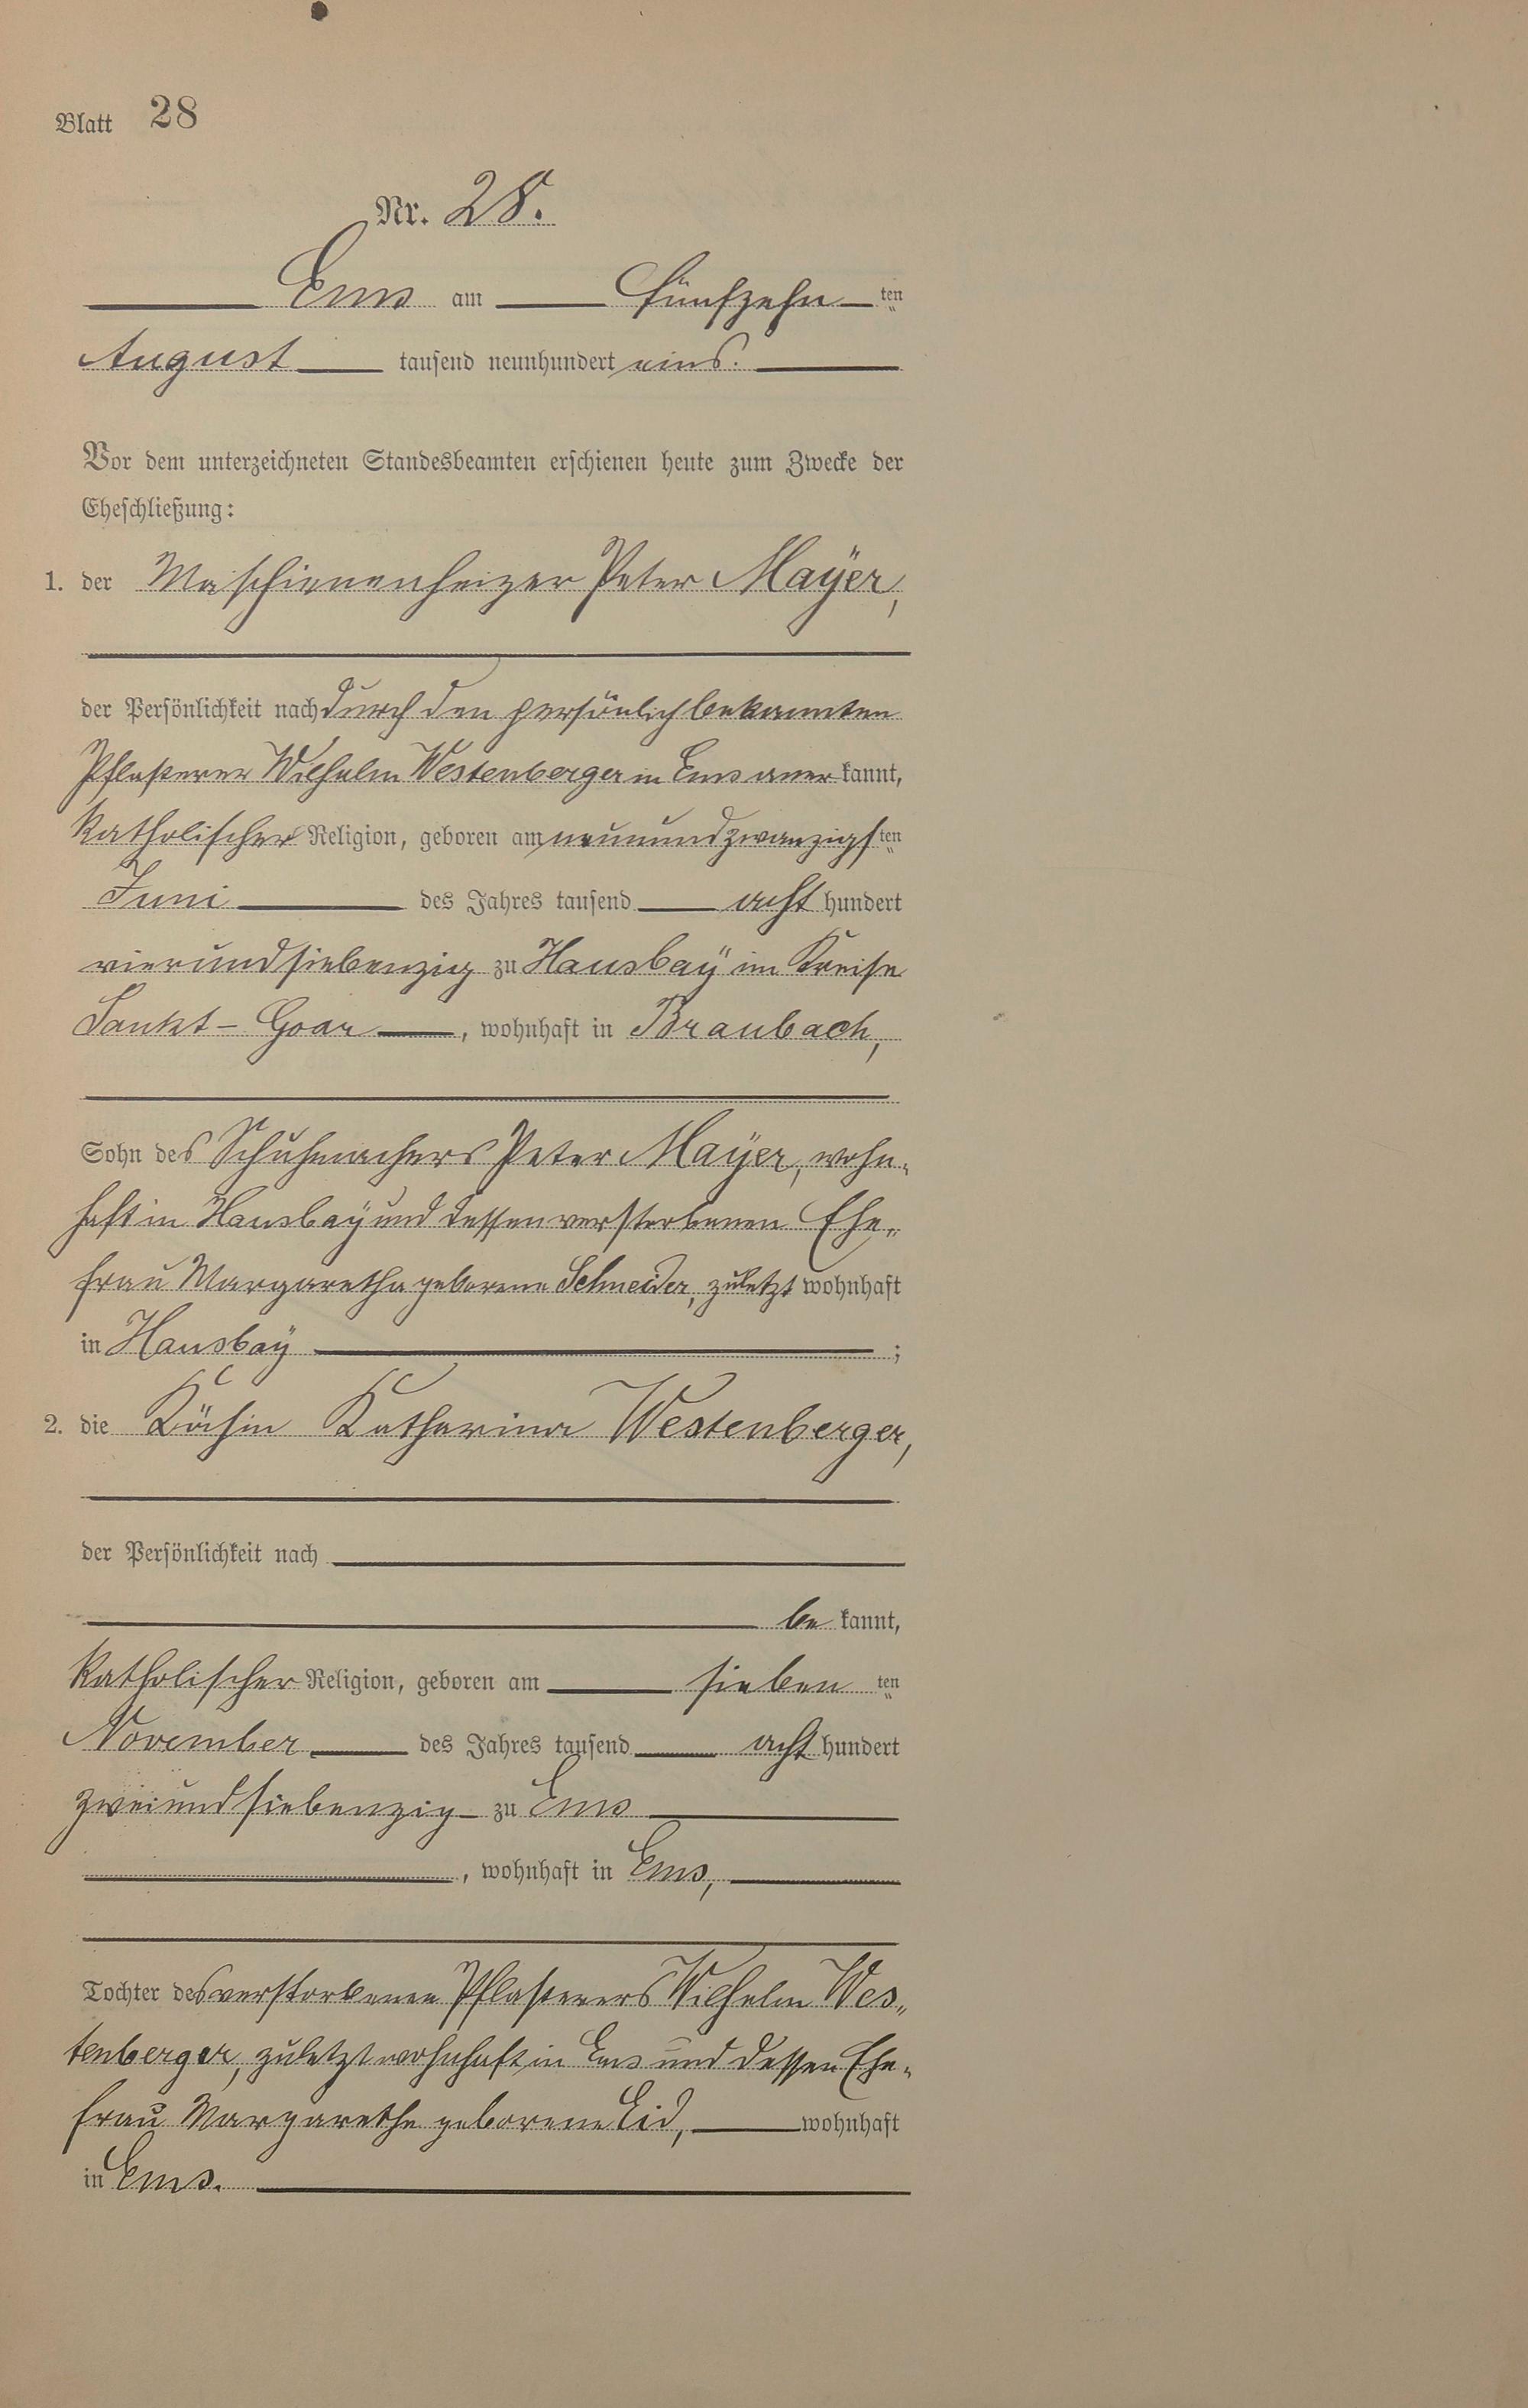 Blatt 28
Nr. 28.
Ems am fünfzehnten
August tausend neunhundert eins.
Vor dem unterzeichneten Standesbeamten erschienen heute zum Zwecke der
Eheschließung:
1. der Maschienenheizer Peter Mayer,
der Persönlichkeit nach durch den persönlich bekannten
Pflasterer Wilhelm Westenberger in Ems anerkannt,
katholischer Religion, geboren am neunundzwanzigsten
Juni des Jahres tausend acht hundert
vierundsiebenzig zu Hausbay im Kreise
Sankt-Goar, wohnhaft in Braubach,
Sohn des Schuhmachers Peter Mayer, wohn-
haft in Hausbay und dessen verstorbenen Ehe-
frau Margaretha geborene Schneider, zuletzt wohnhaft
in Hausbay;
2. die Köchin Katharina Westenberger,
der Persönlichkeit nach
bekannt,
katholischer Religion, geboren am siebenten
November des Jahres tausend acht hundert
zweiundsiebenzig zu Ems
, wohnhaft in Ems,
Tochter des verstorbenen Pflasterers Wilhelm Wes-
tenberger, zuletzt wohnhaft in Ems und dessen Ehe-
frau Margarethe geborene Eid, wohnhaft
in Ems.